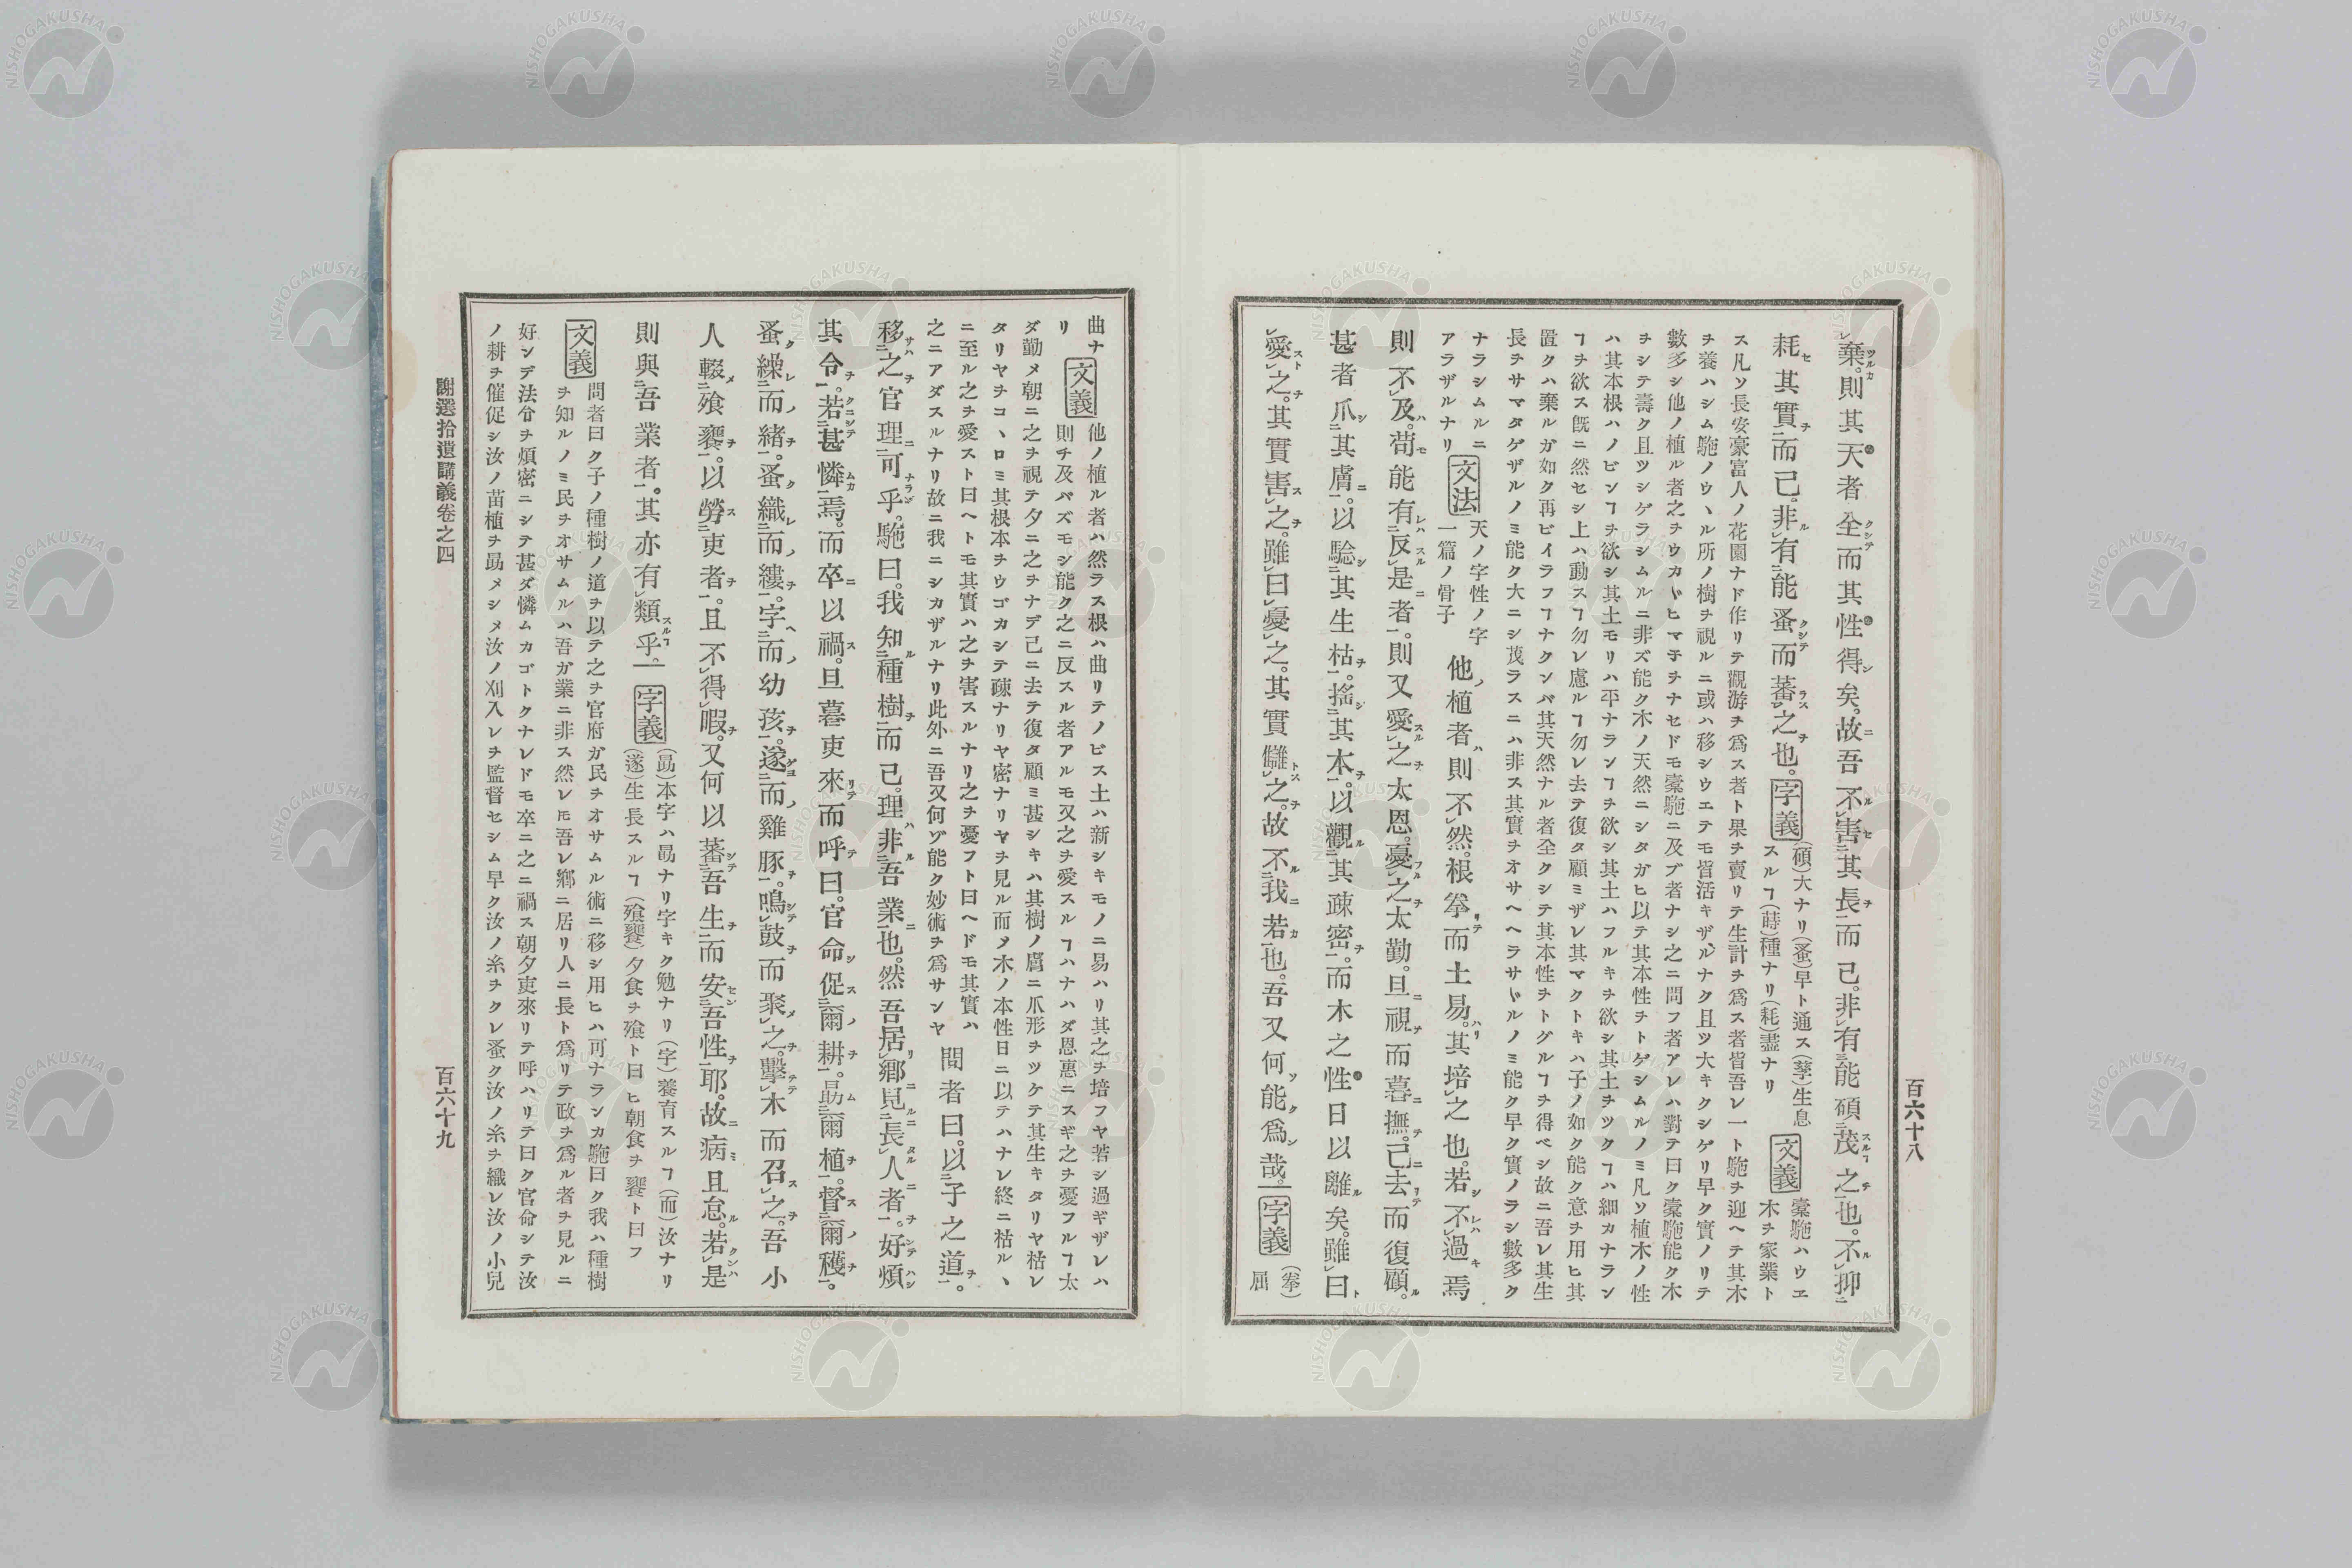 百六十八
棄。則其天者全而其性得矣。故吾不害其長而已。非有能碩茂之也。不抑
耗其實而已。非有能蚤而蕃之也。
字義
(碩)大ナリ(蚤)早ト通ス(孳)生息
スルヿ(蒔)種ナリ(耗)盡ナリ
文義
槖駞ハウエ
木ヲ家業ト
ス凡ソ長安豪富人ノ花園ナド作リテ觀游ヲ爲ス者ト果ヲ賣リテ生計ヲ爲ス者皆吾レ一ト駞ヲ迎ヘテ其木
ヲ養ハシム駞ノウヽル所ノ樹ヲ視ルニ或ハ移シウエテモ皆活キザルナク且ツ大キクシゲリ早ク實ノリテ
數多シ他ノ植ル者之ヲウカヾヒマネヲナセドモ槖駞ニ及ブ者ナシ之ニ問フ者アレハ對テ曰ク槖駞能ク木
ヲシテ壽ク且ツシゲラシムルニ非ズ能ク木ノ天然ニシタガヒ以テ其本性ヲトゲシムルノミ凡ソ植木ノ性
ハ其本根ハノビンヿヲ欲シ其土モリハ平ナランヿヲ欲シ其土ハフルキヲ欲シ其土ヲツクヿハ細カナラン
ヿヲ欲ス既ニ然セシ上ハ動スヿ勿レ慮ルヿ勿レ去テ復タ顧ミザレ其マクトキハ子ノ如ク能ク意ヲ用ヒ其
置クハ棄ルガ如ク再ビイラフヿナクンバ其天然ナル者全クシテ其本性ヲトグルヿヲ得ベシ故ニ吾レ其生
長ヲサマタゲザルノミ能ク大ニシ茂ラスニハ非ス其實ヲオサヘヘラサヾルノミ能ク早ク實ノラシ數多ク
ナラシムルニ
アラザルナリ
文法
天ノ字性ノ字
一篇ノ骨子
他植者則不然。根拳而土易。其培之也。若不過焉
則不及。苟能有反是者。則又愛之太恩。憂之太勤。旦視而暮撫。已去而復顧。
甚者爪其膚。以驗其生枯。搖其本。以觀其疎密。而木之性日以離矣。雖曰
愛之。其實害之。雖曰憂之。其實讎之。故不我若也。吾又何能爲哉。
字義
(拳)
屈
曲ナ
リ
文義
他ノ植ル者ハ然ラス根ハ曲リテノビス土ハ新シキモノニ易ハリ其之ヲ培フヤ若シ過ギザレハ
則チ及バズモシ能ク之ニ反スル者アルモ又之ヲ愛スルヿハナハダ恩惠ニスギ之ヲ憂フルヿ太
ダ勤メ朝ニ之ヲ視テ夕ニ之ヲナデ已ニ去テ復タ顧ミ甚シキハ其樹ノ膚ニ爪形ヲツケテ其生キタリヤ枯レ
タリヤヲコヽロミ其根本ヲウゴカシテ疎ナリヤ密ナリヤヲ見ル而〆木ノ本性日ニ以テハナレ終ニ枯ルヽ
ニ至ル之ヲ愛スト曰ヘトモ其實ハ之ヲ害スルナリ之ヲ憂フト曰ヘドモ其實ハ
之ニアダスルナリ故ニ我ニシカザルナリ此外ニ吾又何ゾ能ク妙術ヲ爲サンヤ
問者曰。以子之道。
移之官理可乎。駞曰。我知種樹而已。理非吾業也。然吾居鄕見長人者。好煩
其令。若甚憐焉。而卒以禍。旦暮吏來而呼曰。官命促爾耕。勗爾植。督爾穫。
蚤繰而緒。蚤織而縷。字而幼孩。遂而雞豚。鳴鼓而聚之。擊木而召之。吾小
人輟飱饔。以勞吏者。且不得暇。又何以蕃吾生而安吾性耶。故病且怠。若是
則與吾業者。其亦有類乎。
字義
(勗)本字ハ勖ナリ字キク勉ナリ(字)養育スルヿ(而)汝ナリ
(遂)生長スルヿ(飱饔)夕食ヲ飱ト曰ヒ朝食ヲ饔ト曰フ
文義
問者曰ク子ノ種樹ノ道ヲ以テ之ヲ官府ガ民ヲオサムル術ニ移シ用ヒハ可ナランカ駞曰ク我ハ種樹
ヲ知ルノミ民ヲオサムルハ吾ガ業ニ非ス然レ𪜈吾レ鄕ニ居リ人ニ長ト爲リテ政ヲ爲ル者ヲ見ルニ
好ンデ法令ヲ煩密ニシテ甚ダ憐ムカゴトクナレドモ卒ニ之ニ禍ス朝夕吏來リテ呼ハリテ曰ク官命シテ汝
ノ耕ヲ催促シ汝ノ苗植ヲ勗メシメ汝ノ刈入レヲ監督セシム早ク汝ノ糸ヲクレ蚤ク汝ノ糸ヲ織レ汝ノ小兒
謝選拾遺講義卷之四
百六十九